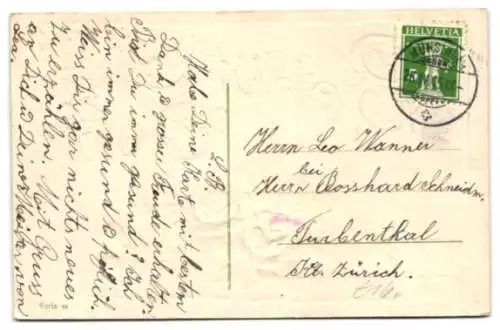 L. B.
Habe Deine Karte mit bestem
Dank & grosser Freude erhalten.
Bist Du immer gesund? Ich
bin immer gesund &
Weis Dir gar nichts neues
zu erzählen. Mit Gruss
an Dich & Deine Meister von
Leo.
HELVETIA
5
Herrn Leo Wanner
bei
Herrn Bosshard Schneidm.
Turbenthal
Kt. Zürich.
Serie